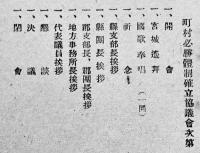 町村必勝體制確立協議會次第
一、開會
一、宮城遙拜
一、國歌奉唱(一同)
一、祈念
一、縣支部長挨拶
一、縣團長挨拶
一、郡支部長、郡團長挨拶
一、地方事務所長挨拶
一、代表議員挨拶
一、懇談
一、決議
一、閉會